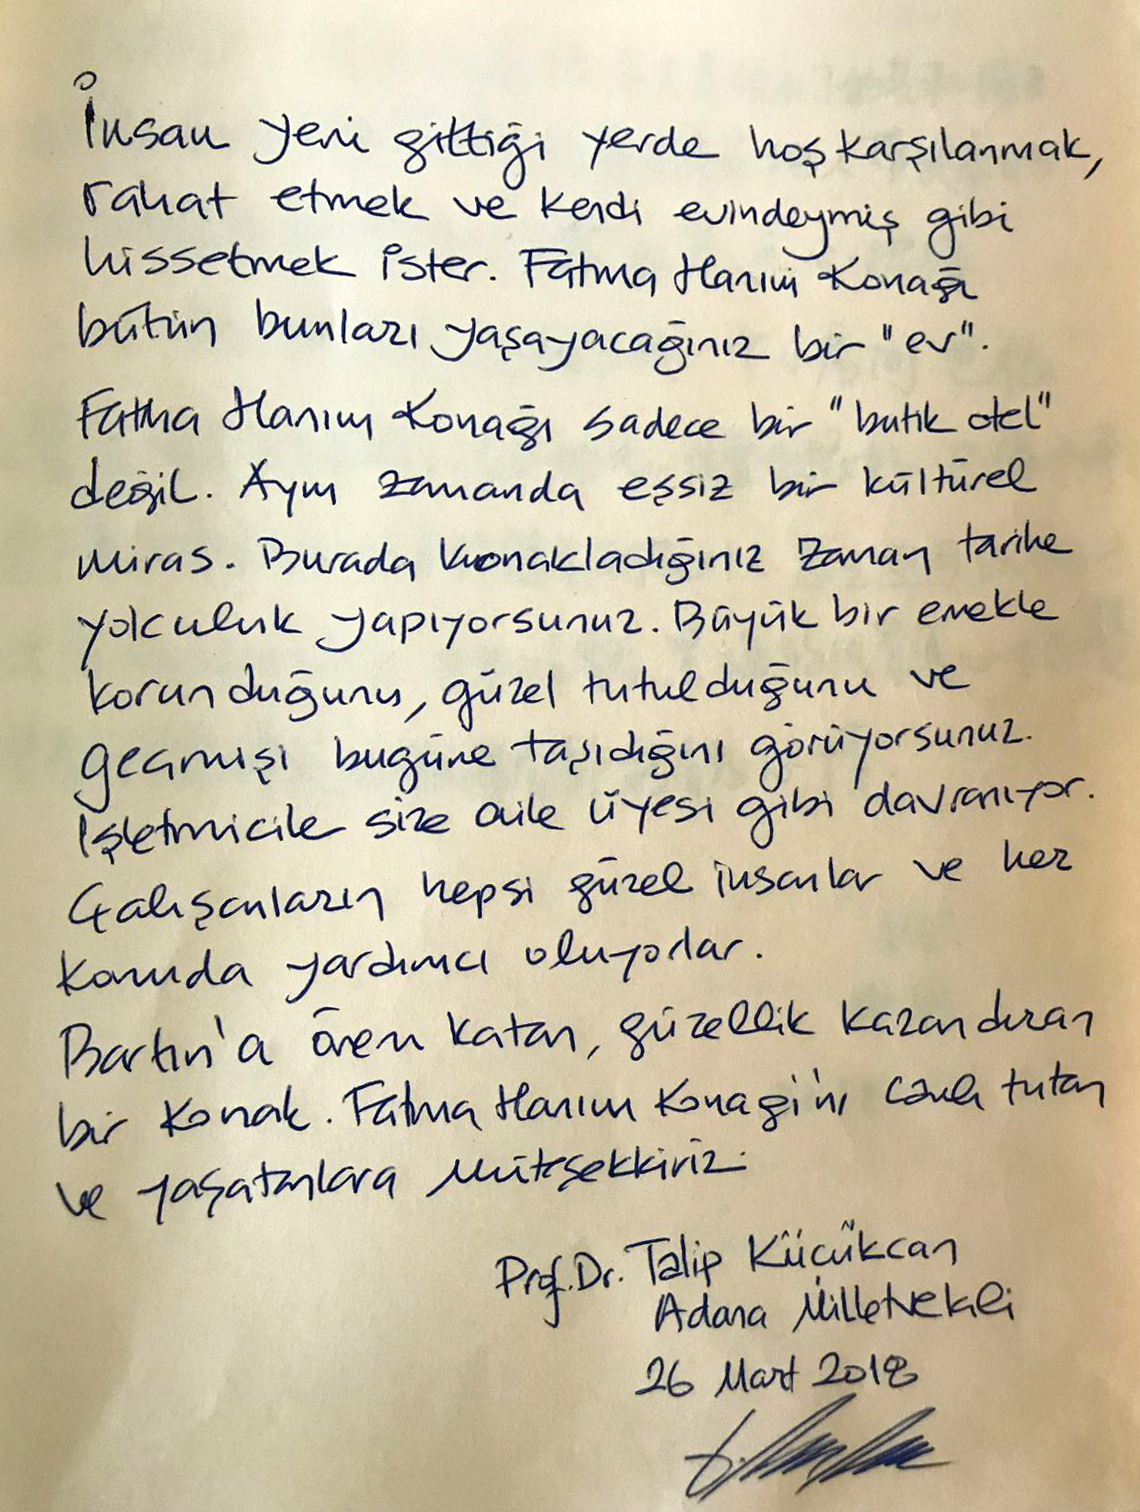 İnsan yeni gittiği yerde hoş karşılanmak,
rahat etmek ve kendi evindeymiş gibi
hissetmek ister. Fatma Hanım Konağı
bütün bunları yaşayacağınız bir "ev".
Fatma Hanım Konağı sadece bir "butik otel"
değil. Aynı zamanda eşsiz bir kültürel
miras. Burada konakladığınız zaman tarihe
yolculuk yapıyorsunuz. Büyük bir emekle
korunduğunu, güzel tutulduğunu ve
geçmişi bugüne taşıdığını görüyorsunuz.
İşletmicile size aile üyesi gibi davranıyor.
Çalışanların hepsi güzel insanlar ve her
konuda yardımcı oluyorlar.
Bartın'a önem katan, güzellik kazandıran
bir Konak. Fatma Hanım Konağı'nı canlı tutan
ve yaşatanlara müteşekkiriz.
Prof. Dr. Talip Küçükcan
Adana Milletvekili
26 Mart 2018